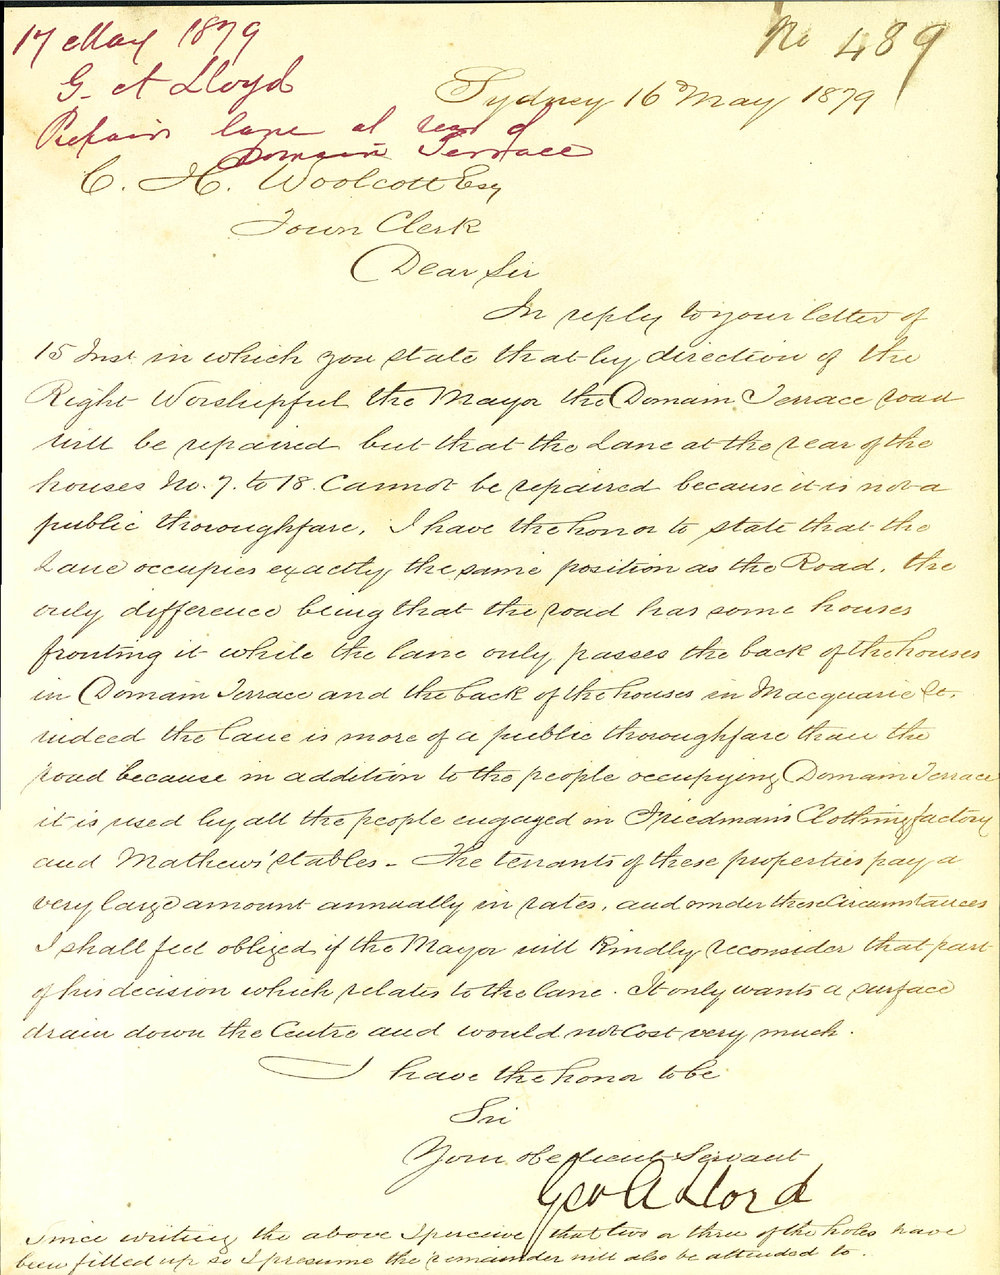 17 May 1879
No 489
G. A Lloyd
Sydney 16 May 1879
Repair lane at rear of
Domain Terrace
C. H. Woolcott Esq
Town Clerk
Dear Sir
In reply to your letter of
15 Inst. in which you state that by direction of the
Right Worshipful the Mayor the Domain Terrace road
will be repaired but that the Lane at the rear of the
houses No. 7. to 18. Cannot be repaired because it is not a
public thoroughfare, I have the honor to state that the
Lane occupies exactly the same position as the Road, the
only difference being that the road has some houses
fronting it while the lane only passes the back of the houses
in Domain Terrace and the back of the houses in Macquarie St.
indeed the lane is more of a public thoroughfare than the
road because in addition to the people occupying Domain Terrace
it is used by all the people engaged in Friedman's Clothing factory
and Mathews' stables - The tenants of these properties pay a
very large amount annually in rates, and under these Circumstances
I shall feel obliged if the Mayor will Kindly reconsider that part
of his decision which relates to the lane. It only wants a surface
drain down the Centre and would not Cost very much.
I have the honor to be
Sir
Your obedient Servant
Geo A Lloyd
Since writing the above I perceive that two or three of the holes have
been filled up so I presume the remainder will also be attended to.